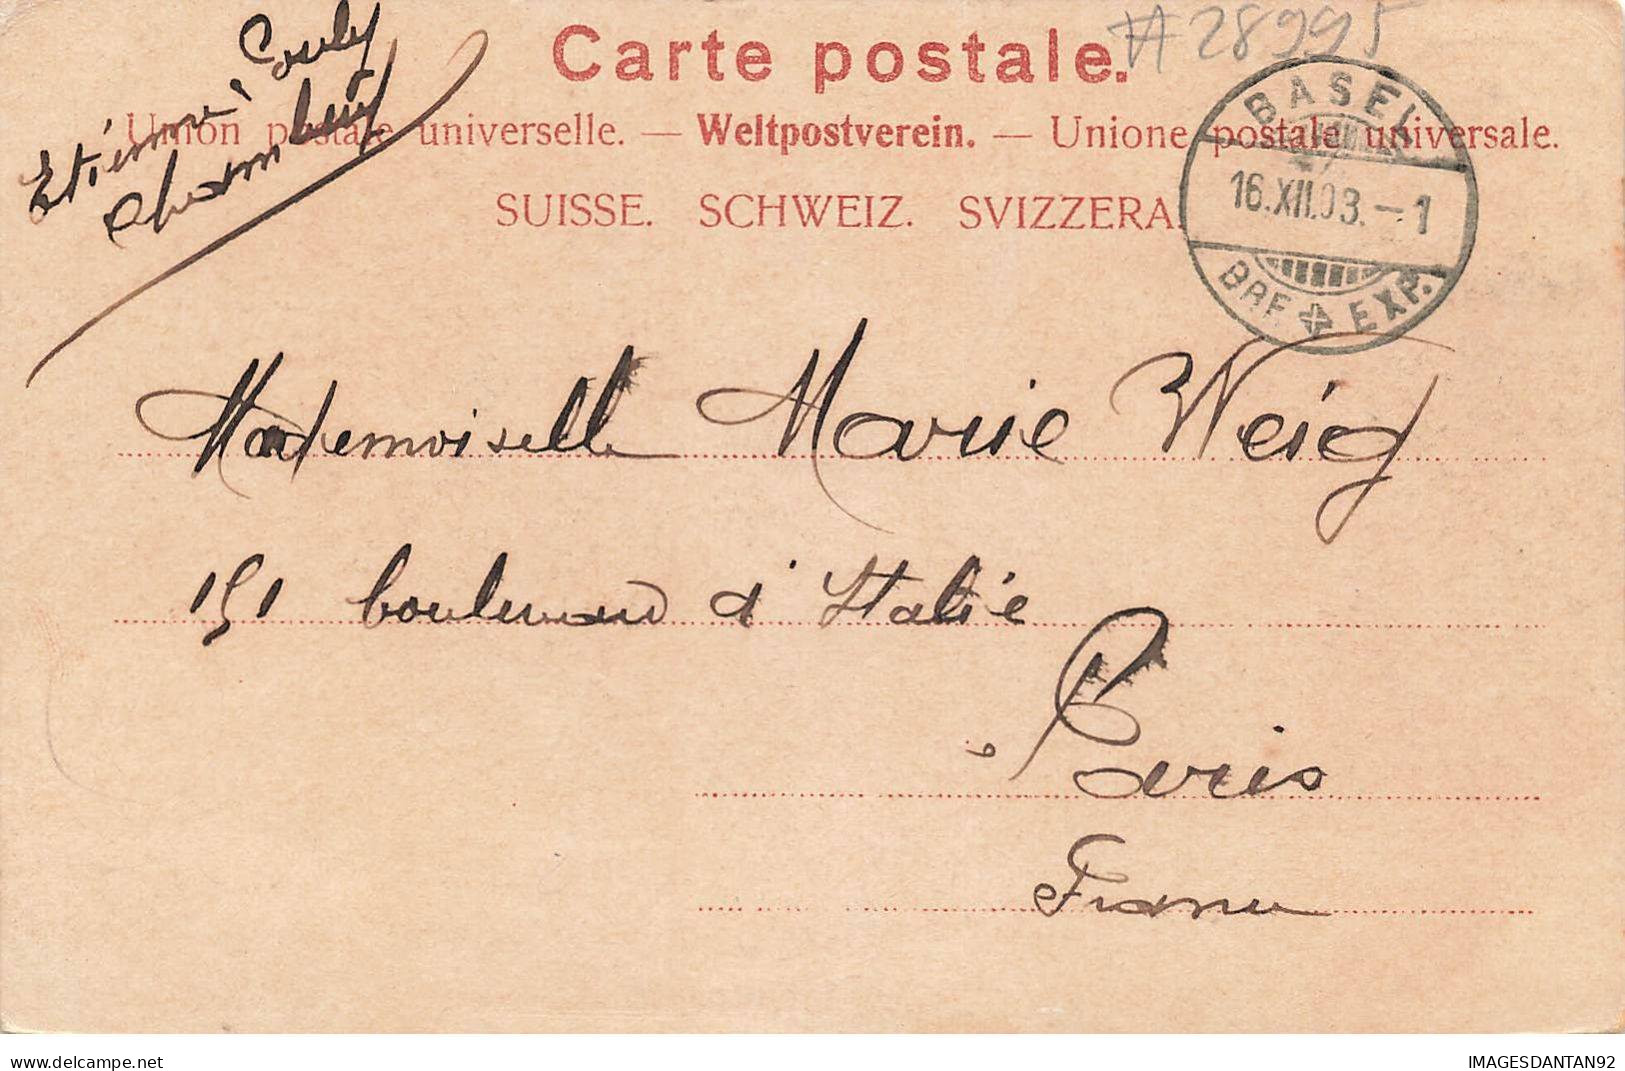 Carte postale.
#28995
Union postale universelle. — Weltpostverein. — Unione postale universale.
SUISSE. SCHWEIZ. SVIZZERA.
BASEL
16.XII.03.-1
BRF. EXP.
Etienne
Mademoiselle Marie Weig
151 boulevard d'Italie
Paris
France
delcampe.net
IMAGESDANTAN92